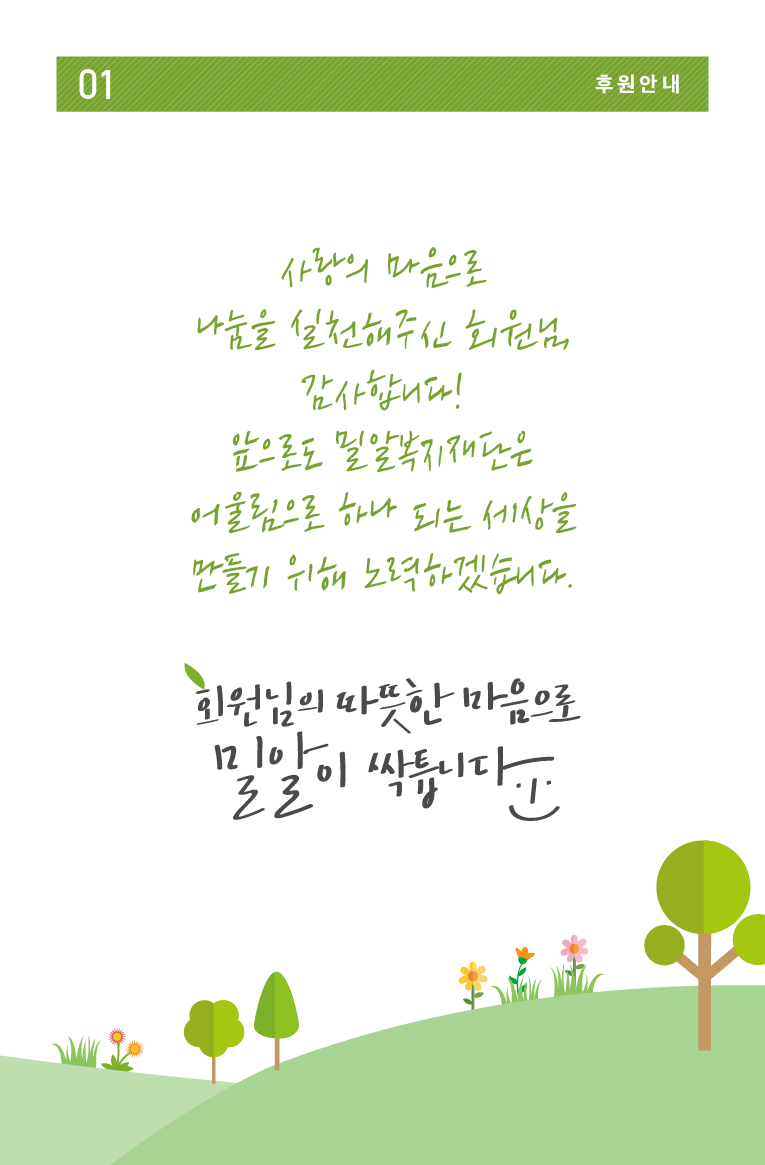 01
후원안내
사랑의 마음으로
나눔을 실천해주신 회원님,
감사합니다!
앞으로도 밀알복지재단은
어울림으로 하나 되는 세상을
만들기 위해 노력하겠습니다.
회원님의 따뜻한 마음으로
밀알이 싹틉니다